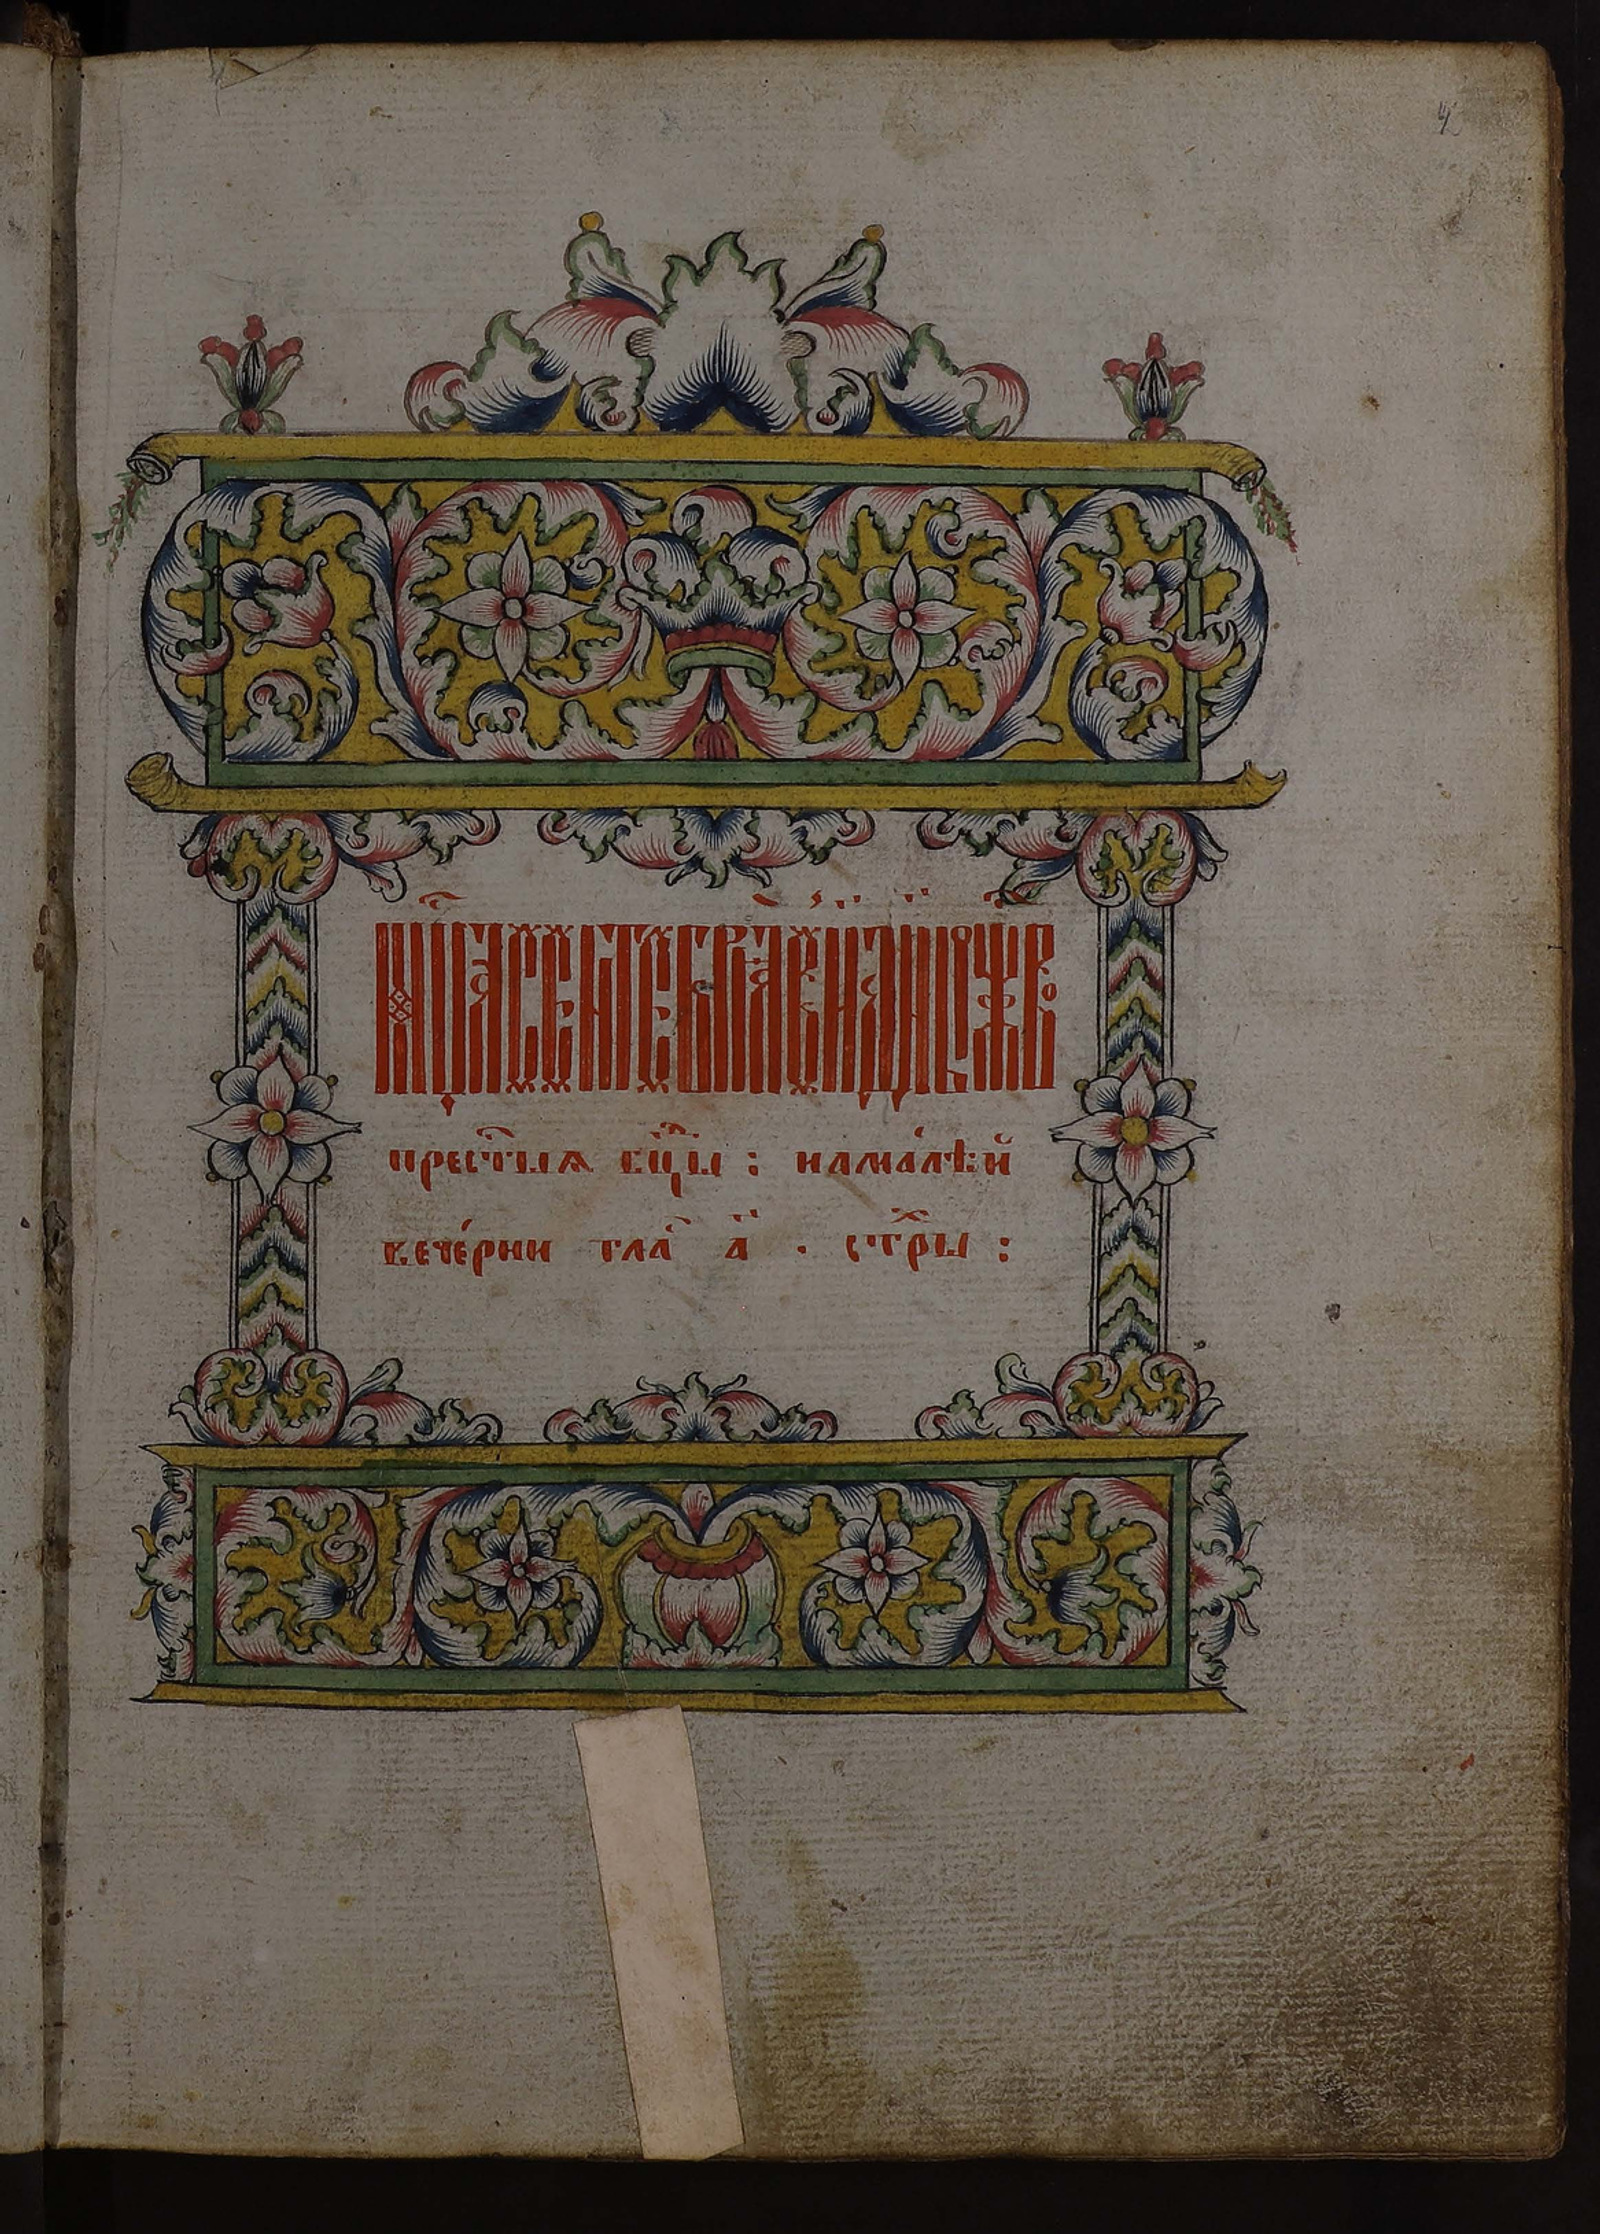 Мц҃а сентебрѧ въ и҃ д҃нь рожⷭ҇тво
прест҃ыѧ бц҃ы : на ма́лѣй
вече́рни глаⷭ҇ а҃ . стⷯры :